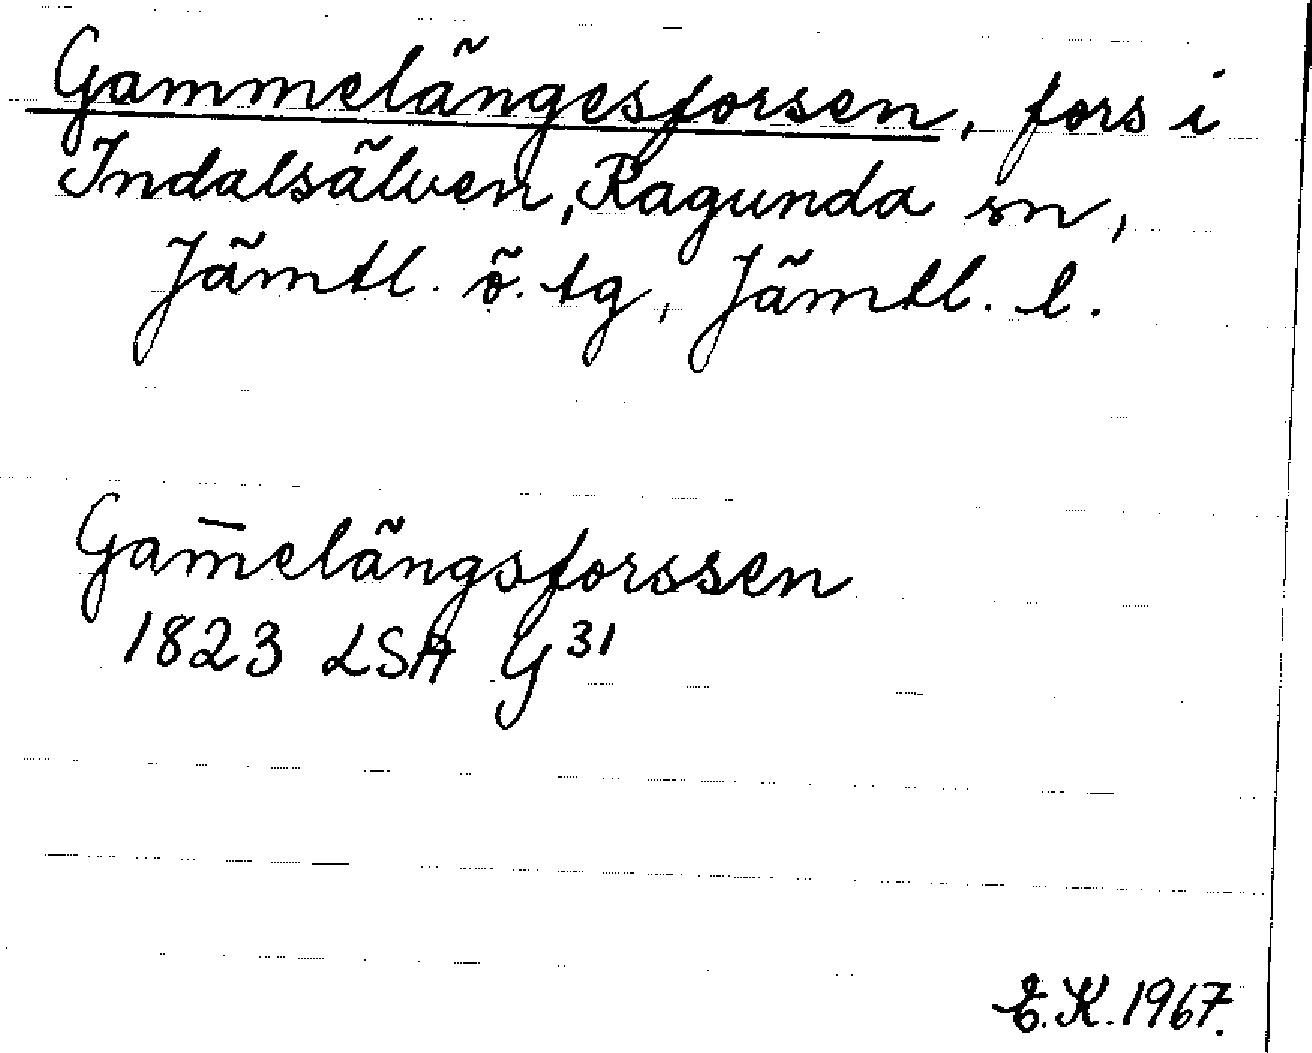 Gammelängesforsen, fors i
Indalsälven, Ragunda sn,
Jämtl. ö. tg, Jämtl. l.
Gam̅elängsforssen
1823 LSA G³¹
E.K. 1967.